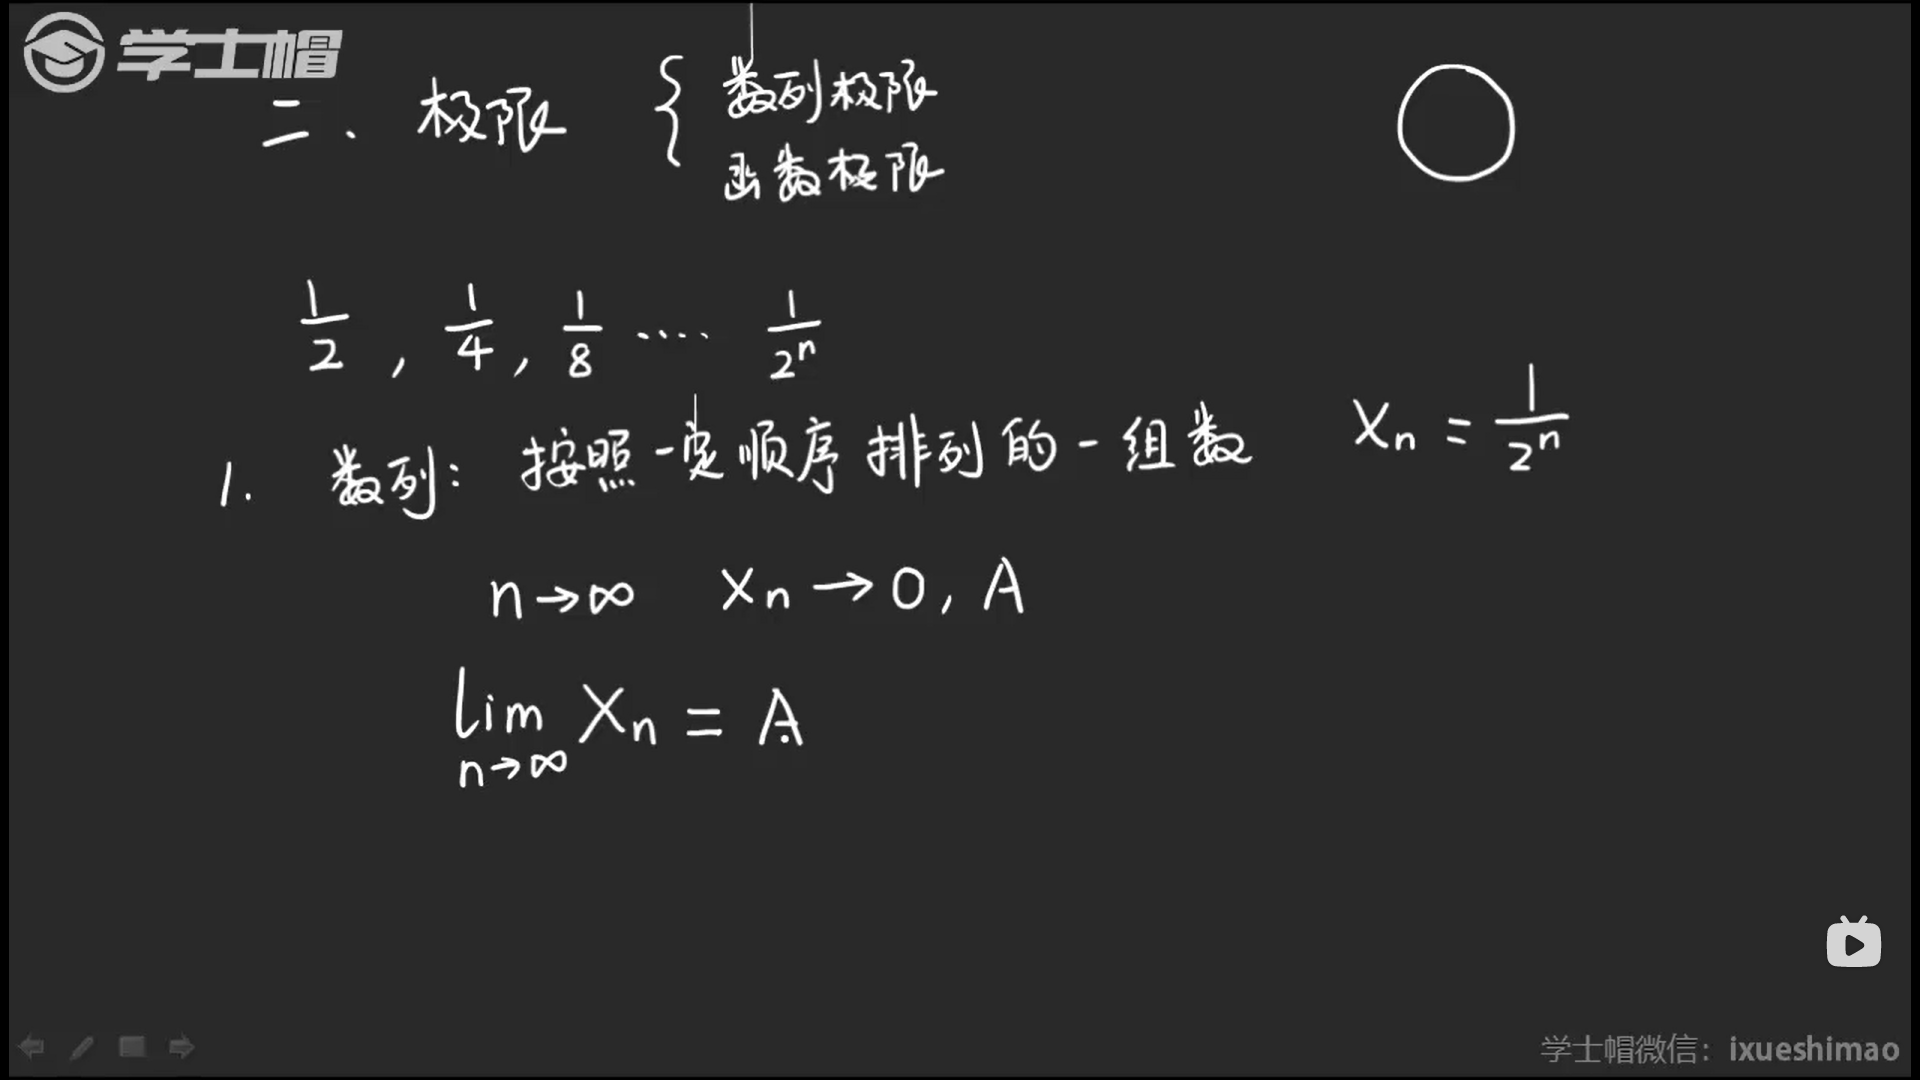 学士帽
二、极限 { 数列极限
函数极限
1/2 , 1/4 , 1/8 ···· 1/2ⁿ
1. 数列: 按照一定顺序排列的一组数 Xₙ = 1/2ⁿ
n→∞ Xₙ→0, A
lim Xₙ = A
n→∞
学士帽微信：ixueshimao